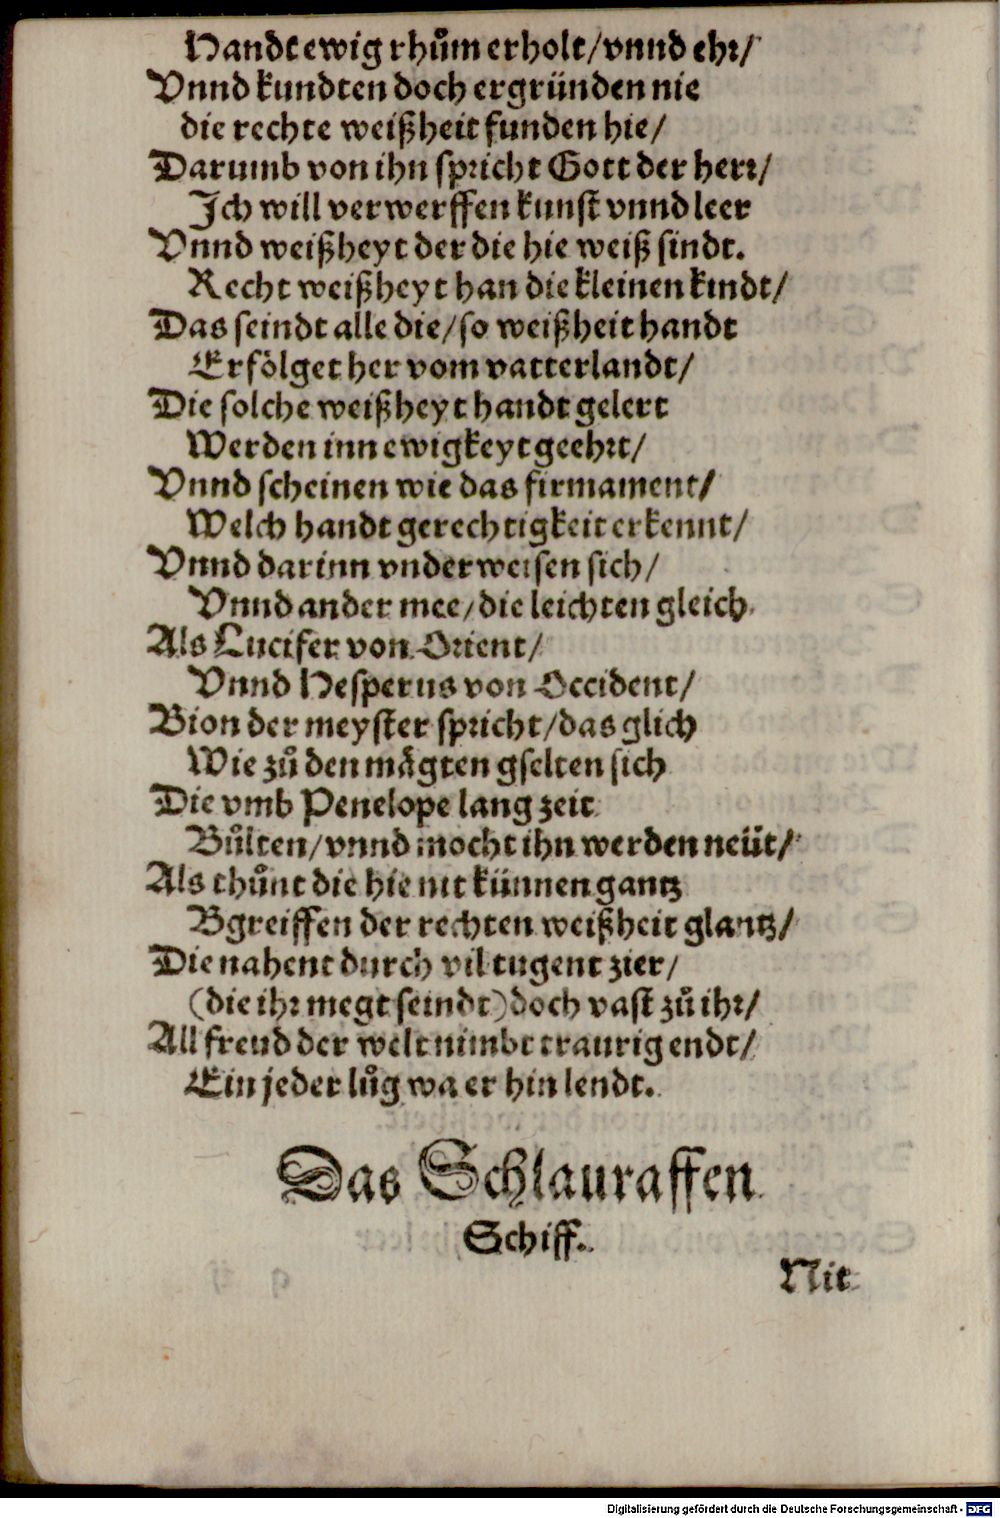 Handt ewig rhům erholt/vnnd ehr/
Vnnd kundten doch ergründen nie
die rechte weißheit funden hie/
Darumb von ihn spricht Gott der herr/
Ich will verwerffen kunst vnnd leer
Vnnd weißheyt der die hie weiß sindt.
Recht weißheyt han die kleinen kindt/
Das seindt alle die/so weißheit handt
Erfölget her vom vatterlandt/
Die solche weißheyt handt gelert
Werden inn ewigkeyt geehrt/
Vnnd scheinen wie das firmament/
Welch handt gerechtigkeit erkennt/
Vnnd darinn vnderweisen sich/
Vnnd ander mee/die leichten gleich
Als Lucifer von Orient/
Vnnd Hesperus von Occident/
Bion der meyster spricht/das glich
Wie zů den mägten gselten sich
Die vmb Penelope lang zeit
Bůlten/vnnd mocht ihn werden neüt/
Als thůnt die hie nit künnen gantz
Bgreiffen der rechten weißheit glantz/
Die nahent durch vil tugent zier/
(die ihr megt seindt) doch vast zů ihr/
All freud der welt nimbt traurig endt/
Ein jeder lůg wa er hin lendt.
Das Schlauraffen
Schiff.
Nit
Digitalisierung gefördert durch die Deutsche Forschungsgemeinschaft - DFG